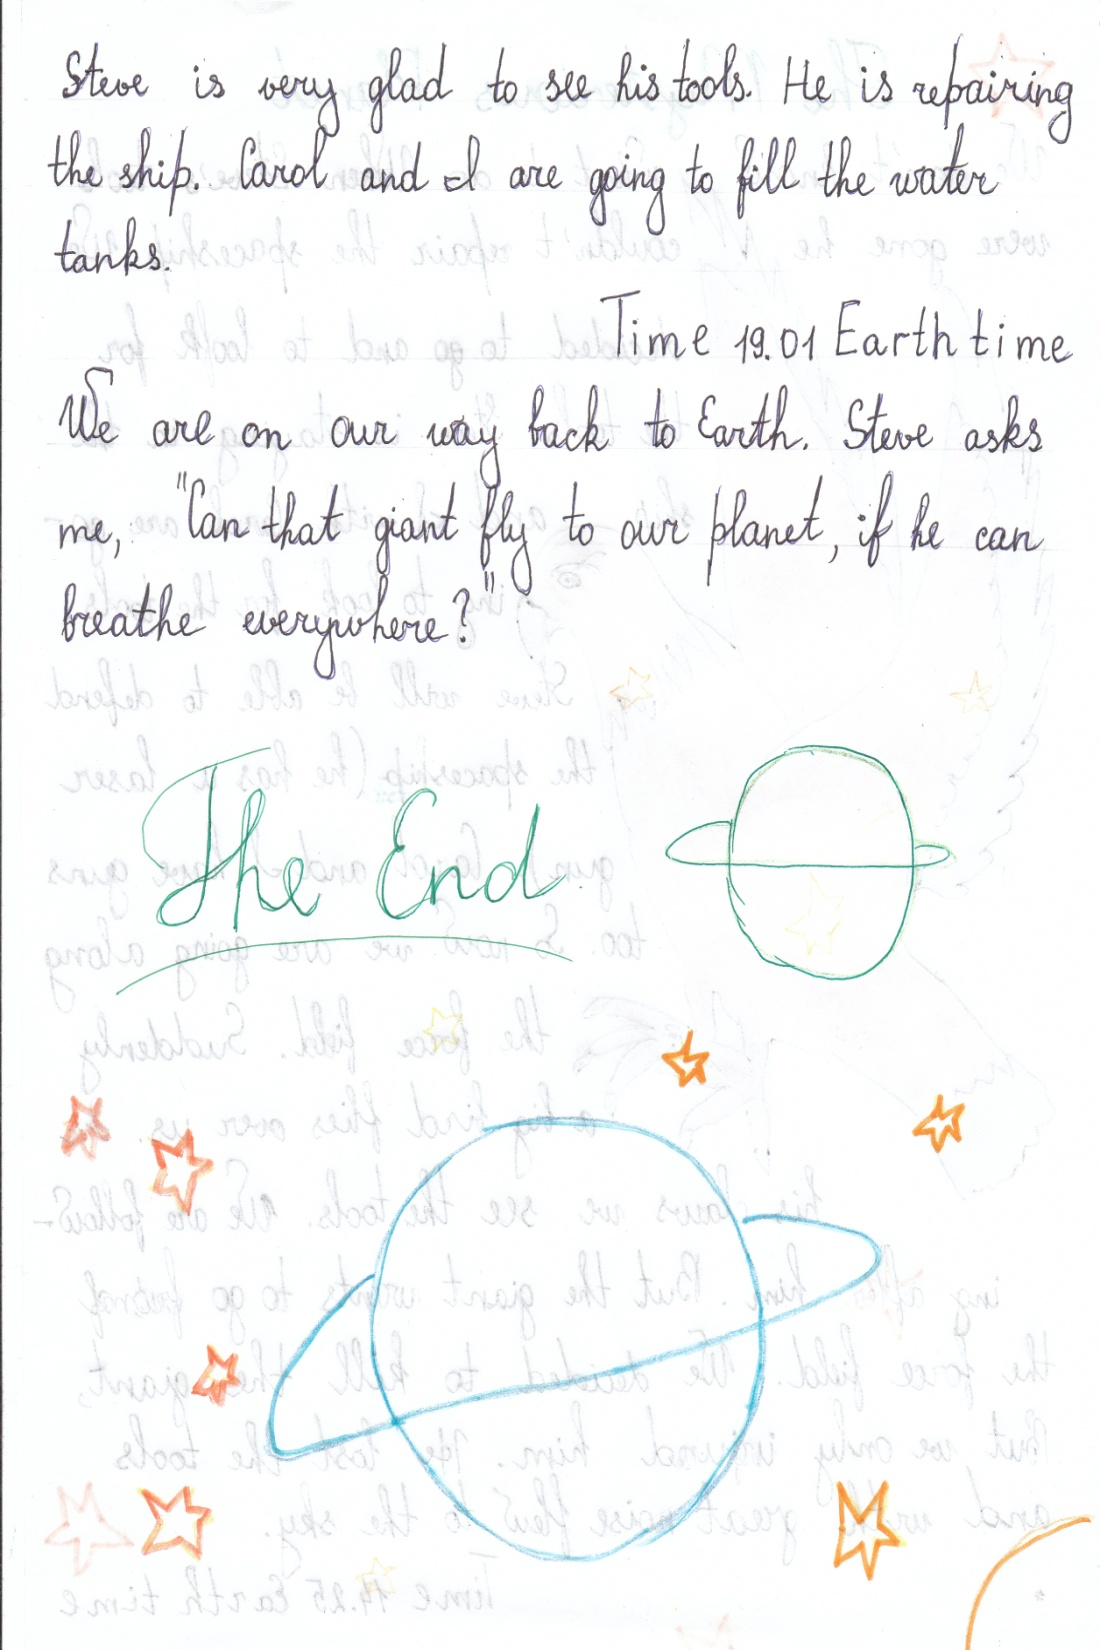 Steve is very glad to see his tools. He is repairing
the ship. Carol and I are going to fill the water
tanks.
Time 19.01 Earth time
We are on our way back to Earth. Steve asks
me, "Can that giant fly to our planet, if he can
breathe everywhere?"
The End